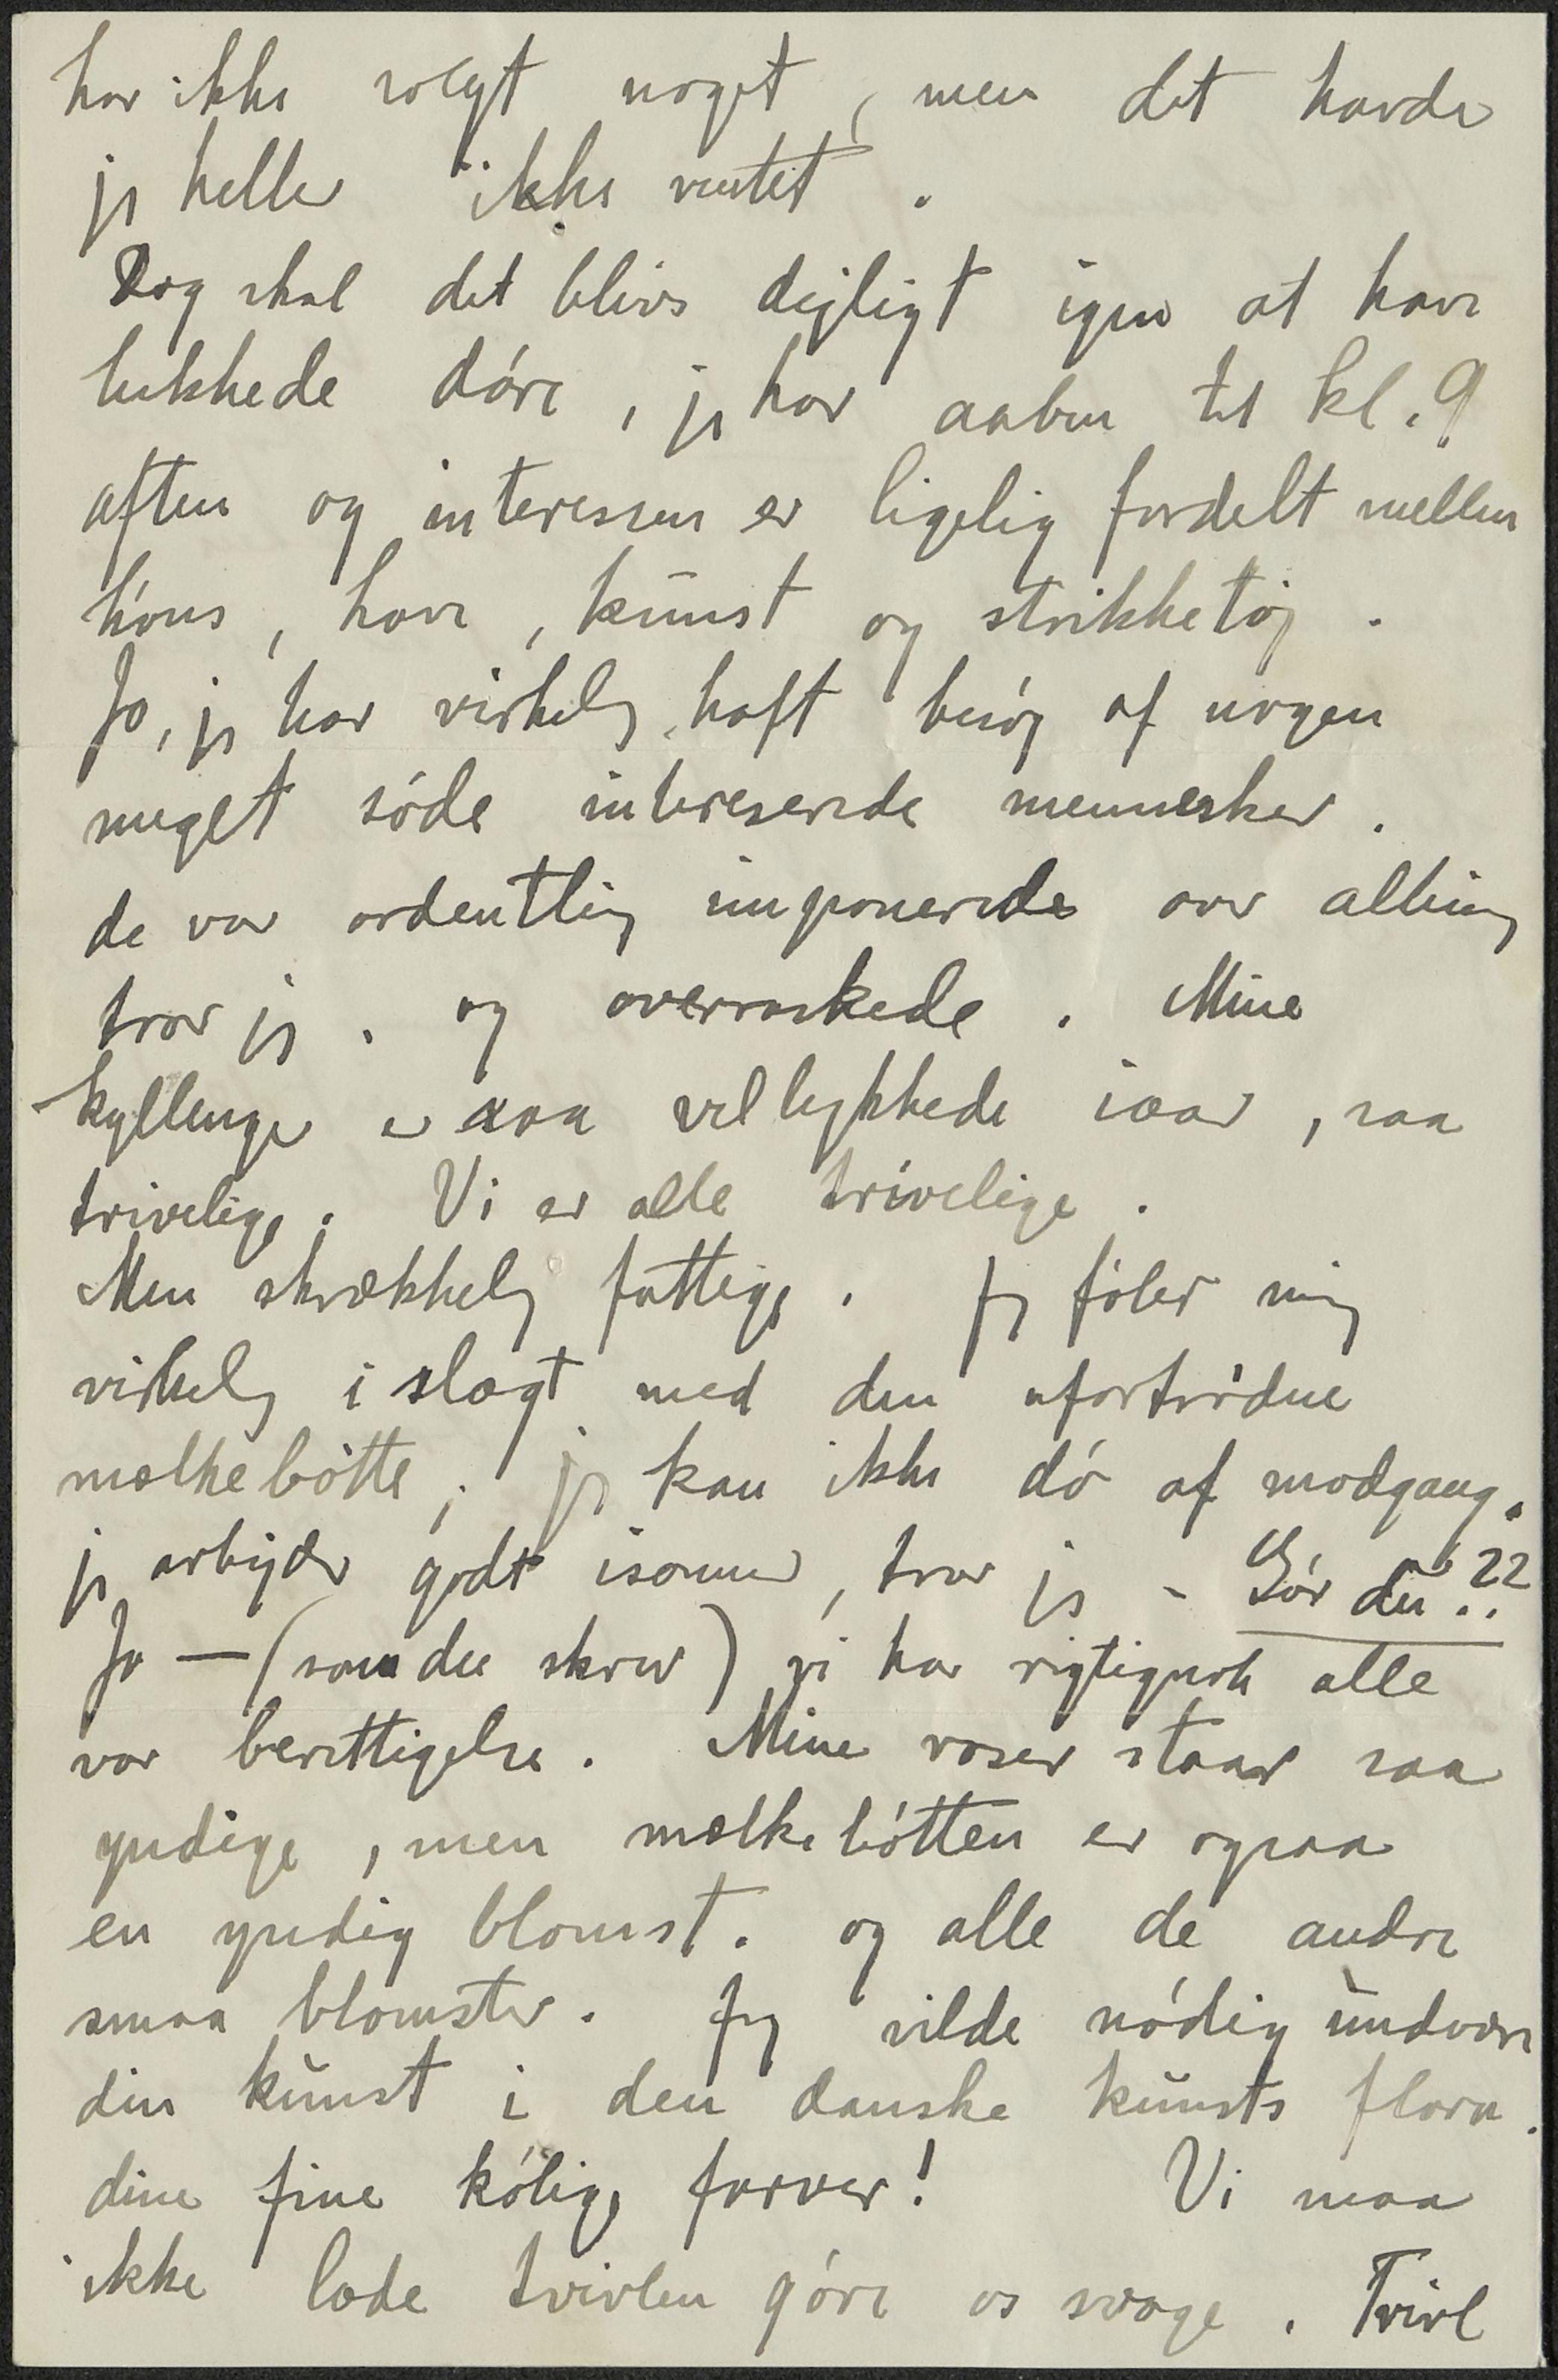 har ikke solgt noget, men det havde
jeg heller ikke ventet.
Dog skal det blive dejligt igen at have
lukkede döre, jeg har aaben til kl. 9
aften og interessen er ligelig fordelt mellem
höns, have, kunst og strikketöj.
Jo, jeg har virkelig haft besög af nogen
meget söde intereserede mennesker.
de var ordentlig imponerede over alting
tror jeg. og overraskede. Mine
kyllinger er saa vellykkede iaar, saa
trivelige. Vi er alle trivelige.
Men skrækkelig fattige. Jeg föler mig
virkelig i slægt med den ufortrödne
mælkebötte; jeg kan ikke dö af modgang.
jeg arbejder godt isommer, tror jeg - Gör du??
Jo — (som du skrev) vi har rigtignok alle
vor berettigelse. Mine roser staar saa
yndige, men mælkebötten er ogsaa
en yndig blomst. og alle de andre
smaa blomster. Jeg vilde nödig undvære
din kunst i den danske kunsts flora.
dine fine kölige farver! Vi maa
ikke lade tvivlen göre os svage. Tvivl